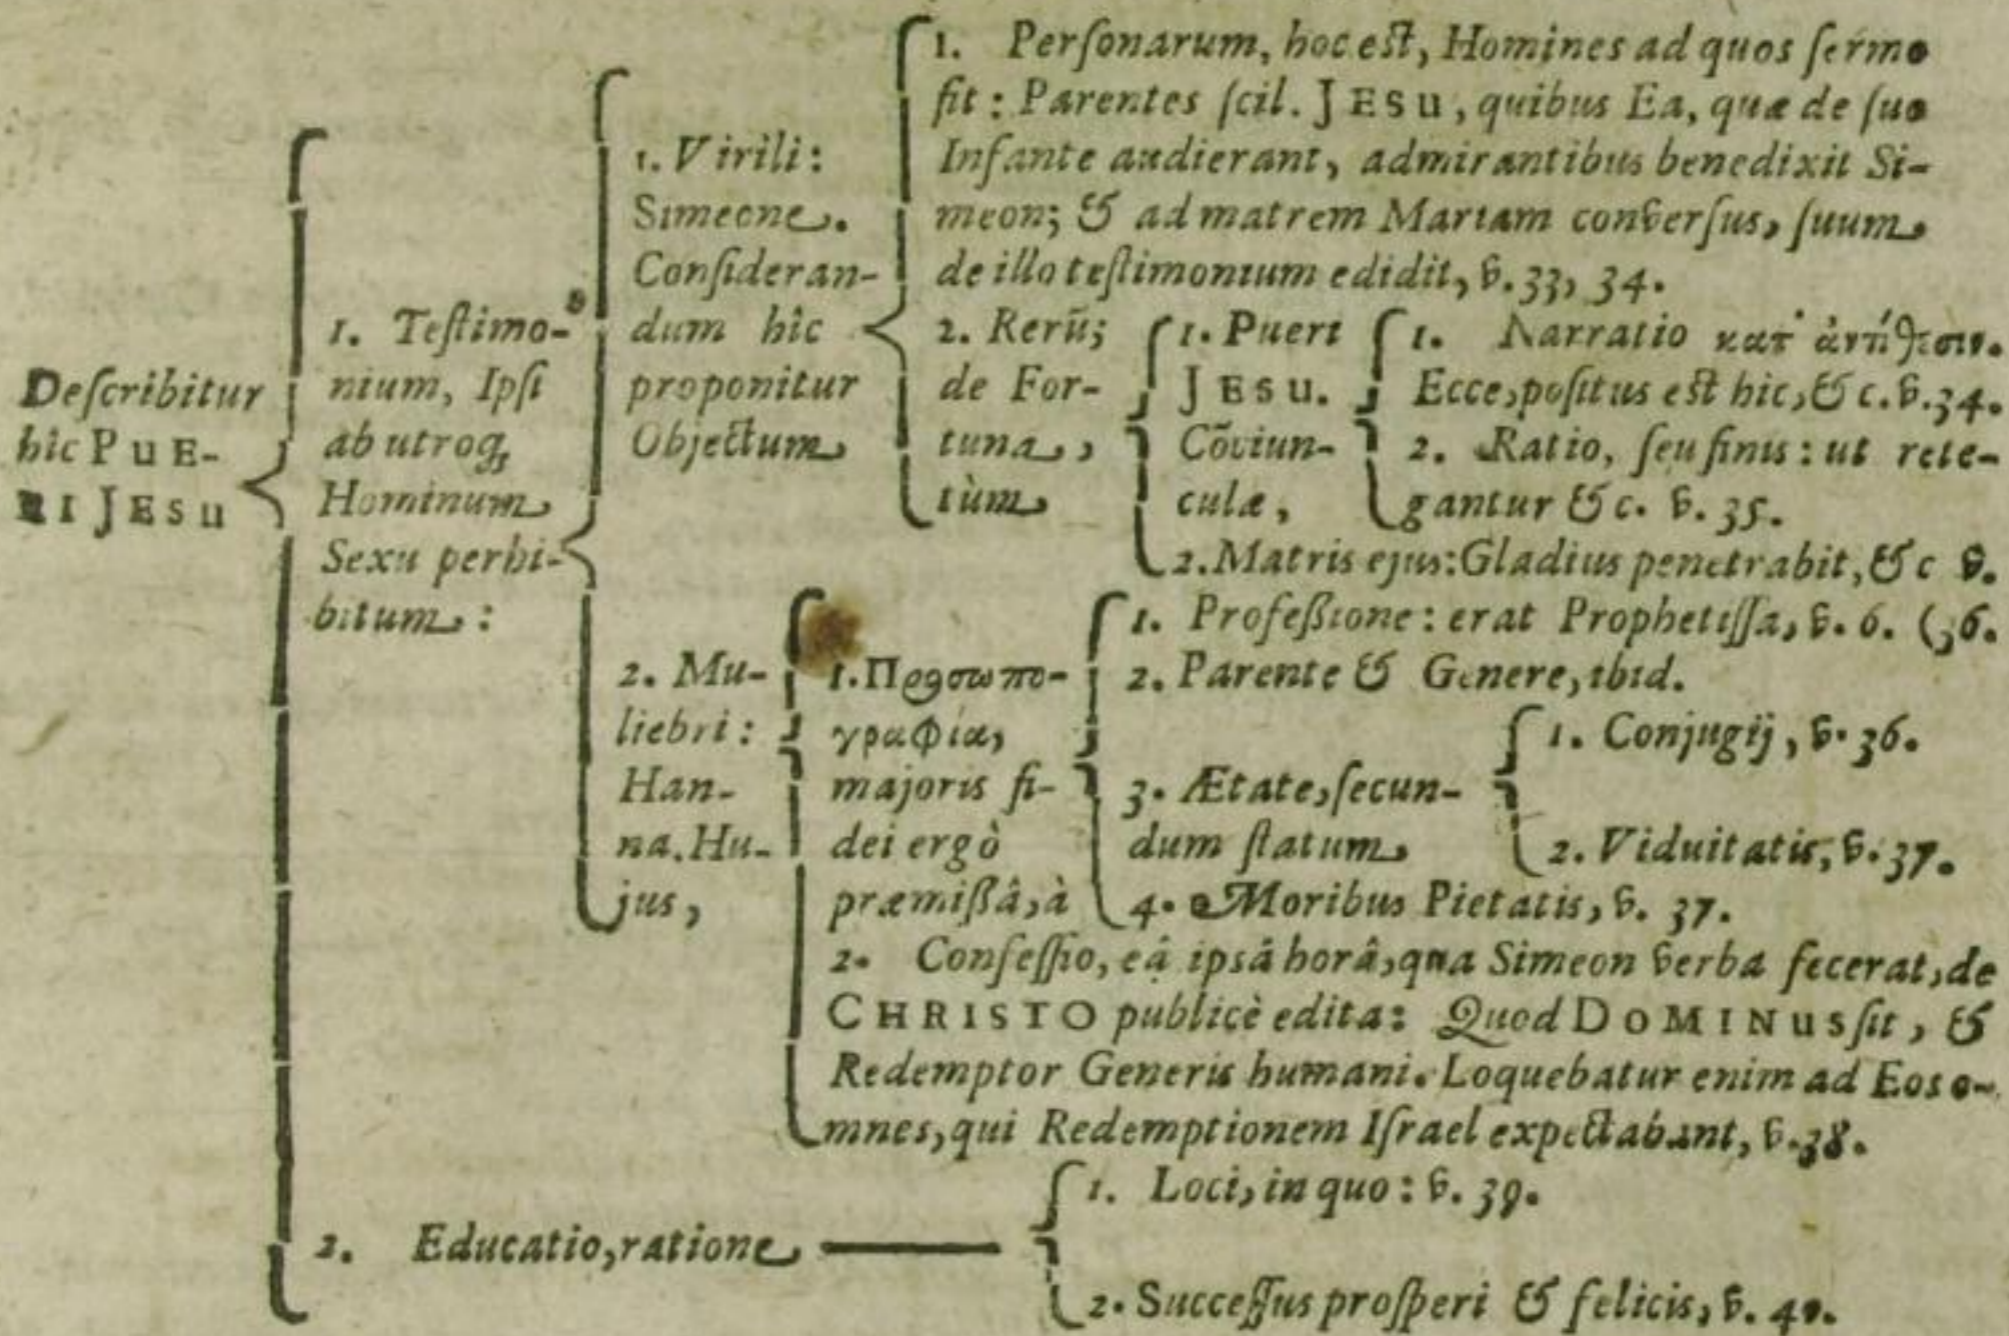 Deſcribitur
hic PUE-
RI JESU
1. Teſtimo-
nium, Ipſi
ab utroq;
Hominum
Sexu perhi-
bitum:
1. Virili:
Simeone.
Conſideran-
dum hîc
proponitur
Objectum
1. Perſonarum, hoc eſt, Homines ad quos ſermo
fit: Parentes ſcil. JESU, quibus Ea, quæ de ſuo
Infante audierant, admirantibus benedixit Si-
meon; & ad matrem Mariam converſus, ſuum
de illo teſtimonium edidit, v. 33, 34.
2. Rerū;
de For-
tuna,
tùm
1. Pueri
JESU.
Cōciun-
culæ,
1. Narratio κατ' ἀντίθεσιν.
Ecce, poſitus eſt hic, & c. v. 34.
2. Ratio, ſeu finis: ut rete-
gantur & c. v. 35.
2. Matris ejus: Gladius penetrabit, & c v.
2. Mu-
liebri:
Han-
na. Hu-
jus,
1. Προσωπο-
γραφία,
majoris fi-
dei ergò
præmiſsâ, à
1. Profeſsione: erat Prophetiſſa, v. 6. (36.
2. Parente & Genere, ibid.
3. Ætate, ſecun-
dum ſtatum
1. Conjugij, v. 36.
2. Viduitatis, v. 37.
4. Moribus Pietatis, v. 37.
2. Confeſſio, eâ ipsâ horâ, qua Simeon verba fecerat, de
CHRISTO publicè edita: Quod DOMINUS ſit, &
Redemptor Generis humani. Loquebatur enim ad Eos o-
mnes, qui Redemptionem Iſrael expectabant, v. 38.
2. Educatio, ratione
1. Loci, in quo: v. 39.
2. Succeſſus proſperi & felicis, v. 40.